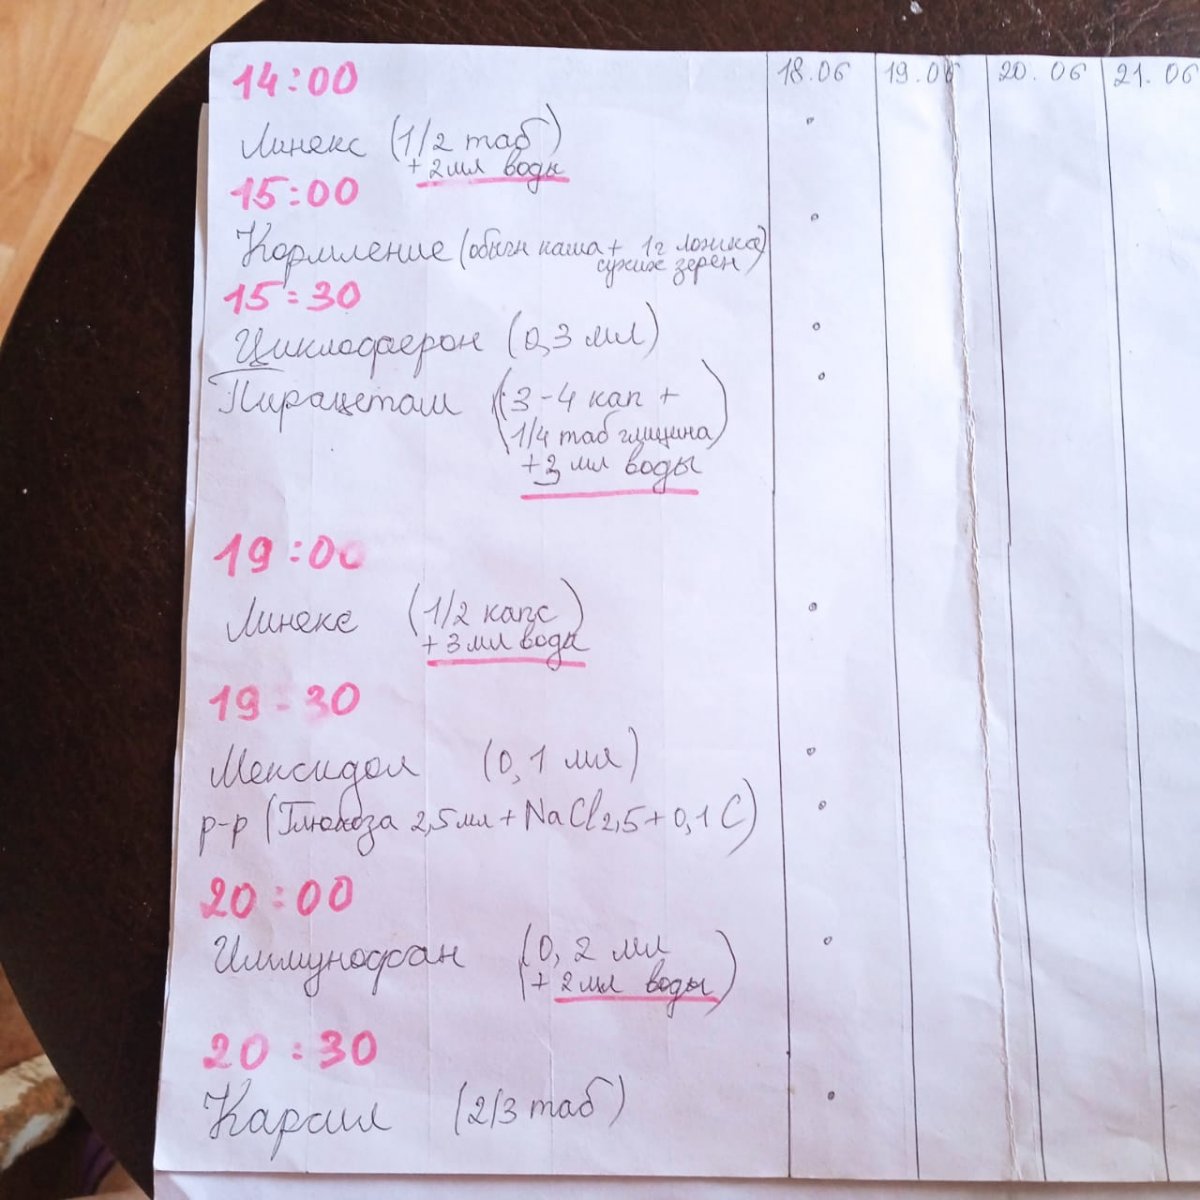 14:00
18.06 19.06 20.06 21.06
Линекс (1/2 таб
+ 2 мл воды)
15:00
Кормление (обычн каша + 1 ч ложка
сухих зерен)
15:30
Циклоферон (0,3 мл)
Пирацетам (3-4 кап +
1/4 таб глицина
+3 мл воды)
19:00
Линекс (1/2 капс
+ 3 мл воды)
19:30
Мексидол (0,1 мл)
р-р (Глюкоза 2,5мл + NaCl 2,5 + 0,1 С)
20:00
Иммунофан (0,2 мл
+ 2 мл воды)
20:30
Карсил (2/3 таб)